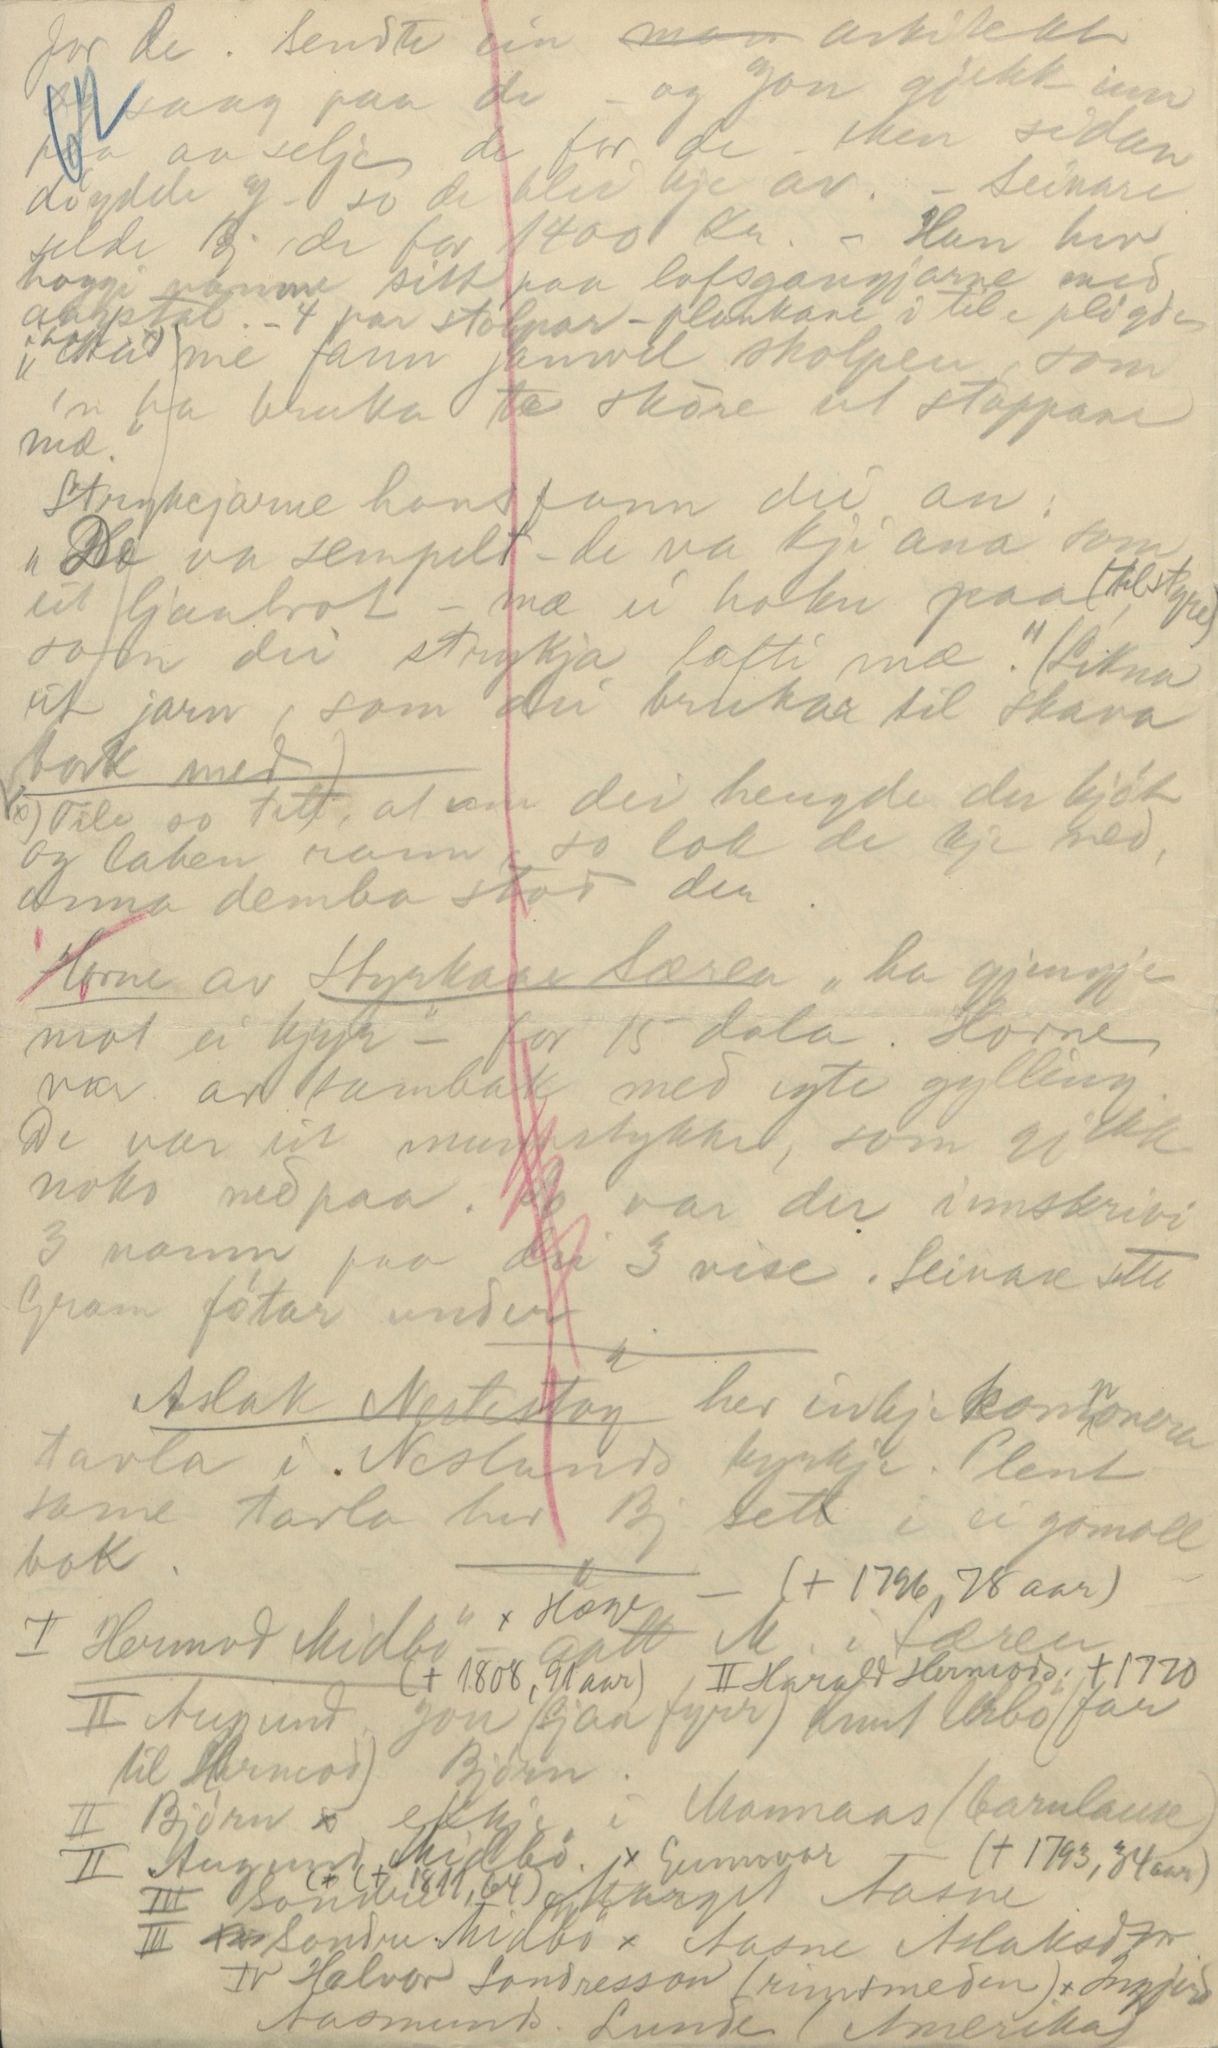 for de. Sendte ein man arkitekt
og saag paa de - og Jon gjekk inn
paa aa selje de for de - Men sidan
döydde J - so de blei kje av. - Seinare
selde Bj de for 1400 Kr. - Han hev
hoggi namne sitt paa lofsgangjarne med
aarstal. - 4 par stolpar - plankane i tile plögde
i hop
"Mæ me fann jamvel skolpen, som
'n ha bruka te skore ut stoppane
mæ."
Strykejarne hans fann dei au:
"De va sempelt - de va kji ana som
eit ljaabrot - mæ ei hoku paa (til styre)
som dei strykja lafti mæ." (Likna
eit jarn, som dei brukar til skava
bork med)
x) Tile so tett, at um dei hengde der kjöt
og laken rann, so lak de kje ned,
anna demba stod der.
Horne av Styrkaar Særen "ha gjengje
mot ei kyr" - for 15 dala. Horne
var av tambak med egte gylling
De var eit munnstykke, som gjekk
noko nedpaa. So var der innskrivi
3 namn paa dei 3 vise. Seinare sette
Gram fötar under
Aslak Nestestog hev inkje
tavla i Neslands kyrkje. Plent
same tavla hev Bj sett i ei gomoll
bok.
x Hæge - (+ 1796, 78 aar)
I Hermod Midbö - aatt M. i Særen
(+ 1808, 91 aar) II Harald Hermods. + 1770
II Augund, Jon (Gjaa fyrr) Knut Urbö (far
til Hermod) Björn.
II Björn x ekkje i Mannaas (barnlause)
II Augund Midbö x Gunvor (+ 1793, 34 aar)
(+ 1811, 64)
III Sondre, Target Aasne
III Sondre Midbö x Aasne Aslaksdtr
IV Halvor Sondresson (rindmeden) x Ingjerd
Aasmunds. Lunde (Amerika)